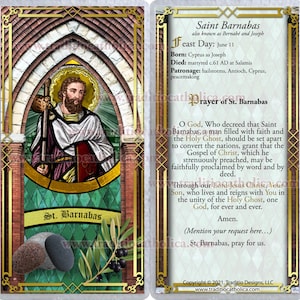 St. Barnabas
Saint Barnabas
also known as Bernabé and Joseph
Feast Day: June 11
Born: Cyprus as Joseph
Died: martyred c.61 AD at Salamis
Patronage: hailstorms, Antioch, Cyprus,
peacemaking
Prayer of St. Barnabas
O God, Who decreed that Saint
Barnabas, a man filled with faith and
the Holy Ghost, should be set apart
to convert the nations, grant that the
Gospel of Christ, which he
strenuously preached, may be
faithfully proclaimed by word and by
deed.
Through our Lord Jesus Christ, Your
Son, who lives and reigns with You in
the unity of the Holy Ghost, one
God, for ever and ever.
Amen.
(Mention your request here...)
St. Barnabas, pray for us.
Copyright © 2021 Traditio Designs, LLC
www.traditiocatholica.com